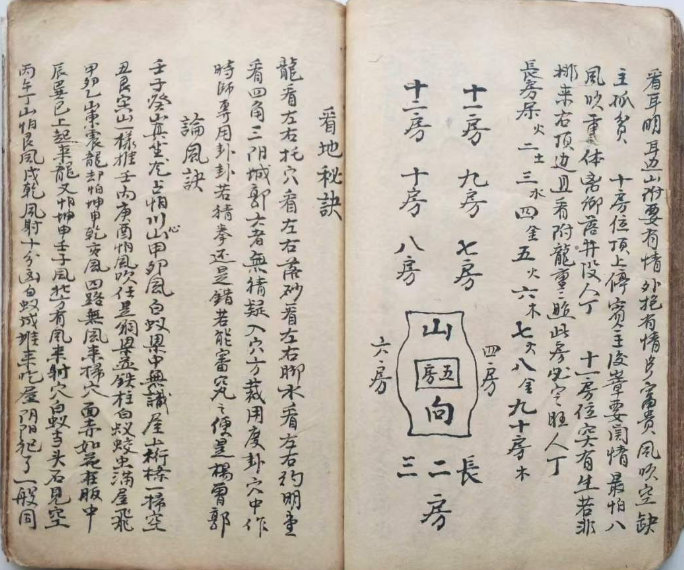 看耳明耳边山附要有情外抱有情出富貴風吹空缺
主孤貧 十房位頂上停賓主後章要関情最怕八
風吹重体离鄉落井没人丁 十一房位突有生若非
排來右頂边且看附龍重二照此房必定旺人丁
長房屎火二土三水四金五火六木七火八金九十房木
十一房 九房 七房
十二房 十房 八房
四房
山
五房
向
六房
長
二房
三
看地秘訣
龍看左右托穴看左右落砂看左右脚水看左右灣明堂
看四角三阴城郭六者無猜疑入穴方裁用度卦穴中作
時師專用卦卦若精拳还是錯若能審究之便是楊曾郭
論風訣
壬子癸山真坐定怕川山甲卯風白蚁梁中無識屋上桁條一掃空
丑艮寅山一樣推壬丙庚酉怕風吹任是銅梁並鉄柱白蚁蛟虫满屋飛
甲卯乙山東震龍却怕坤申乾亥風四路無風來掃穴面赤如花柱腹中
辰巽巳上起來龍又怕坤申壬子風北方有風來射穴白蚁当头石見空
丙午丁山怕艮風戌乾風射十分凶白蚁成堆來吃屋阴阳祀了一般同